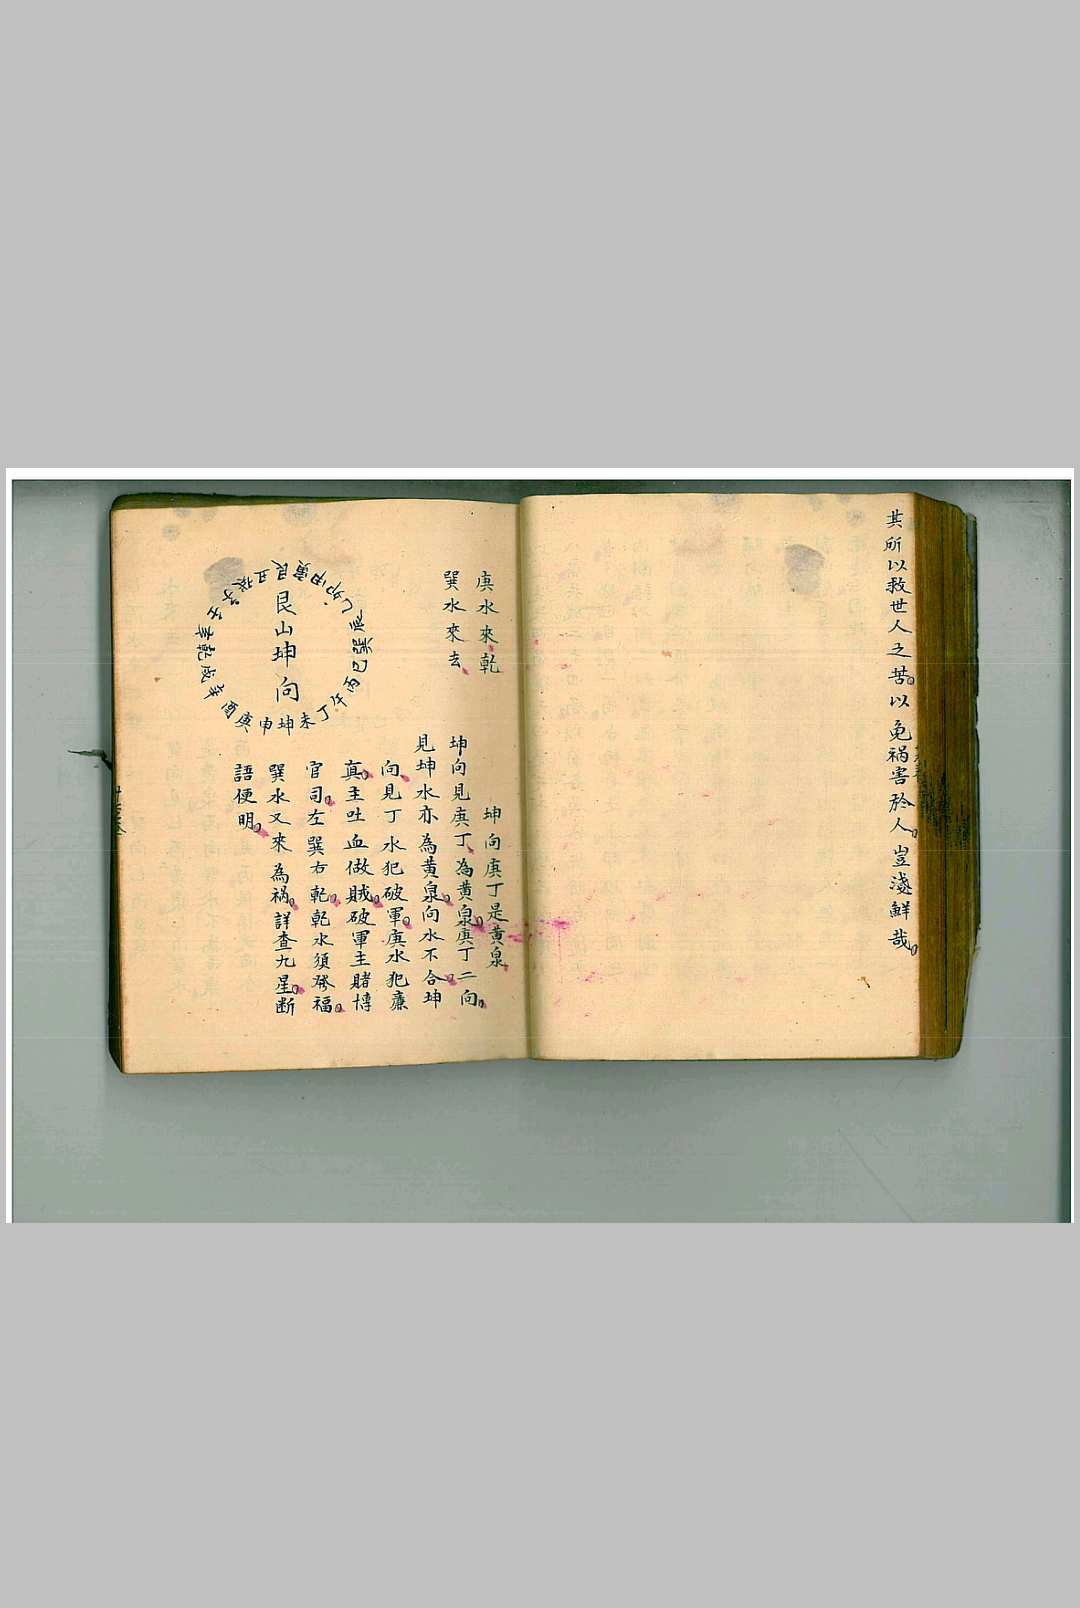 其所以救世人之苦以免祸害於人豈淺鮮哉
庚水來乾
巽水來去
坤向庚丁是黃泉
坤向見庚丁為黃泉庚丁二向
見坤水亦為黃泉向水不合坤
向見丁水犯破軍庚水犯廉
真主吐血做賊破軍主賭博
官司左巽右乾乾水須發福
巽水又來為祸詳查九星断
語便明
艮山坤向
壬子癸丑艮寅甲卯乙辰巽巳丙午丁未坤申庚酉辛戌乾亥